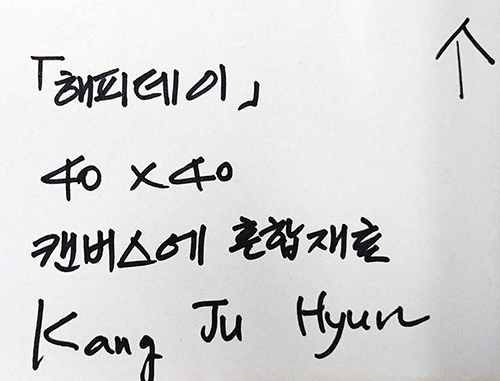 「해피데이」
40 x 40
캔버스에 혼합재료
Kang Ju Hyun